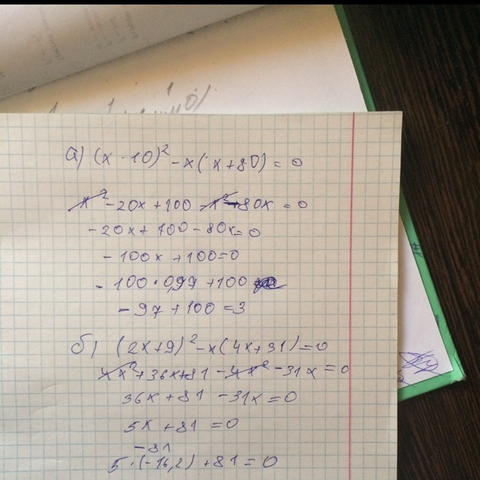 а) (x - 10)² - x(x + 80) = 0
x² - 20x + 100 - x² - 80x = 0
- 20x + 100 - 80x = 0
- 100x + 100 = 0
- 100 · 0,97 + 100
- 97 + 100 = 3
б) (2x + 9)² - x(4x + 31) = 0
4x² + 36x + 81 - 4x² - 31x = 0
36x + 81 - 31x = 0
5x + 81 = 0
- 81
5 · (-16,2) + 81 = 0